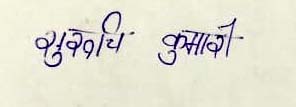 सुरुचि कुमारी